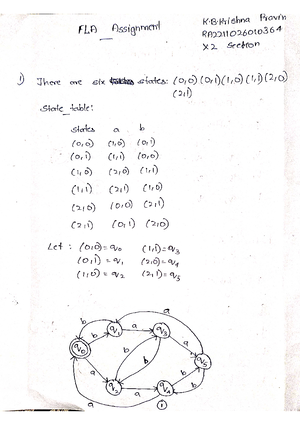 FLA Assignment
K.B.Krishna Provin
RA2211026010364
X2 Section
1) There are six states: (0,0) (0,1) (1,0) (1,1) (2,0)
(2,1)
State table:
states a b
(0,0) (1,0) (0,1)
(0,1) (1,1) (0,0)
(1,0) (2,0) (1,1)
(1,1) (2,1) (1,0)
(2,0) (0,0) (2,1)
(2,1) (0,1) (2,0)
Let : (0,0) = q0 (1,1) = q3
(0,1) = q1 (2,0) = q4
(1,0) = q2 (2,1) = q5
a
b q1 a q3
b b a
q0 b b q5
a b b
q2 a q4
a